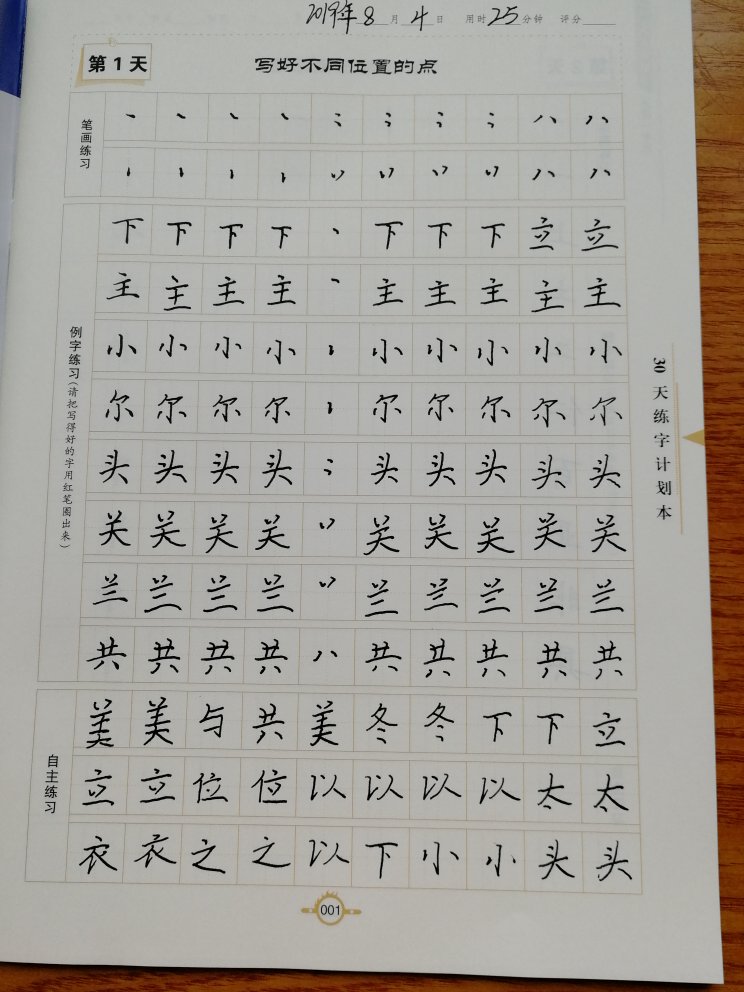 2019年8月4日 用时25分钟 评分
第1天 写好不同位置的点
笔画练习
丶 丶 丶 丶 冫 冫 冫 冫 八 八
丶 丶 丶 丶 丷 丷 丷 丷 八 八
例字练习(请把写得好的字用红笔圈出来)
下 下 下 下 丶 下 下 下 立 立
主 主 主 主 丶 主 主 主 主 主
小 小 小 小 丶 小 小 小 小 小
尔 尔 尔 尔 丶 尔 尔 尔 尔 尔
头 头 头 头 冫 头 头 头 头 头
关 关 关 关 丷 关 关 关 关 关
兰 兰 兰 兰 丷 兰 兰 兰 兰 兰
共 共 共 共 八 共 共 共 共 共
自主练习
美 美 与 共 美 冬 冬 下 下 立
立 立 位 位 以 以 以 以 太 太
衣 衣 之 之 以 下 小 小 头 头
30天练字计划本
001